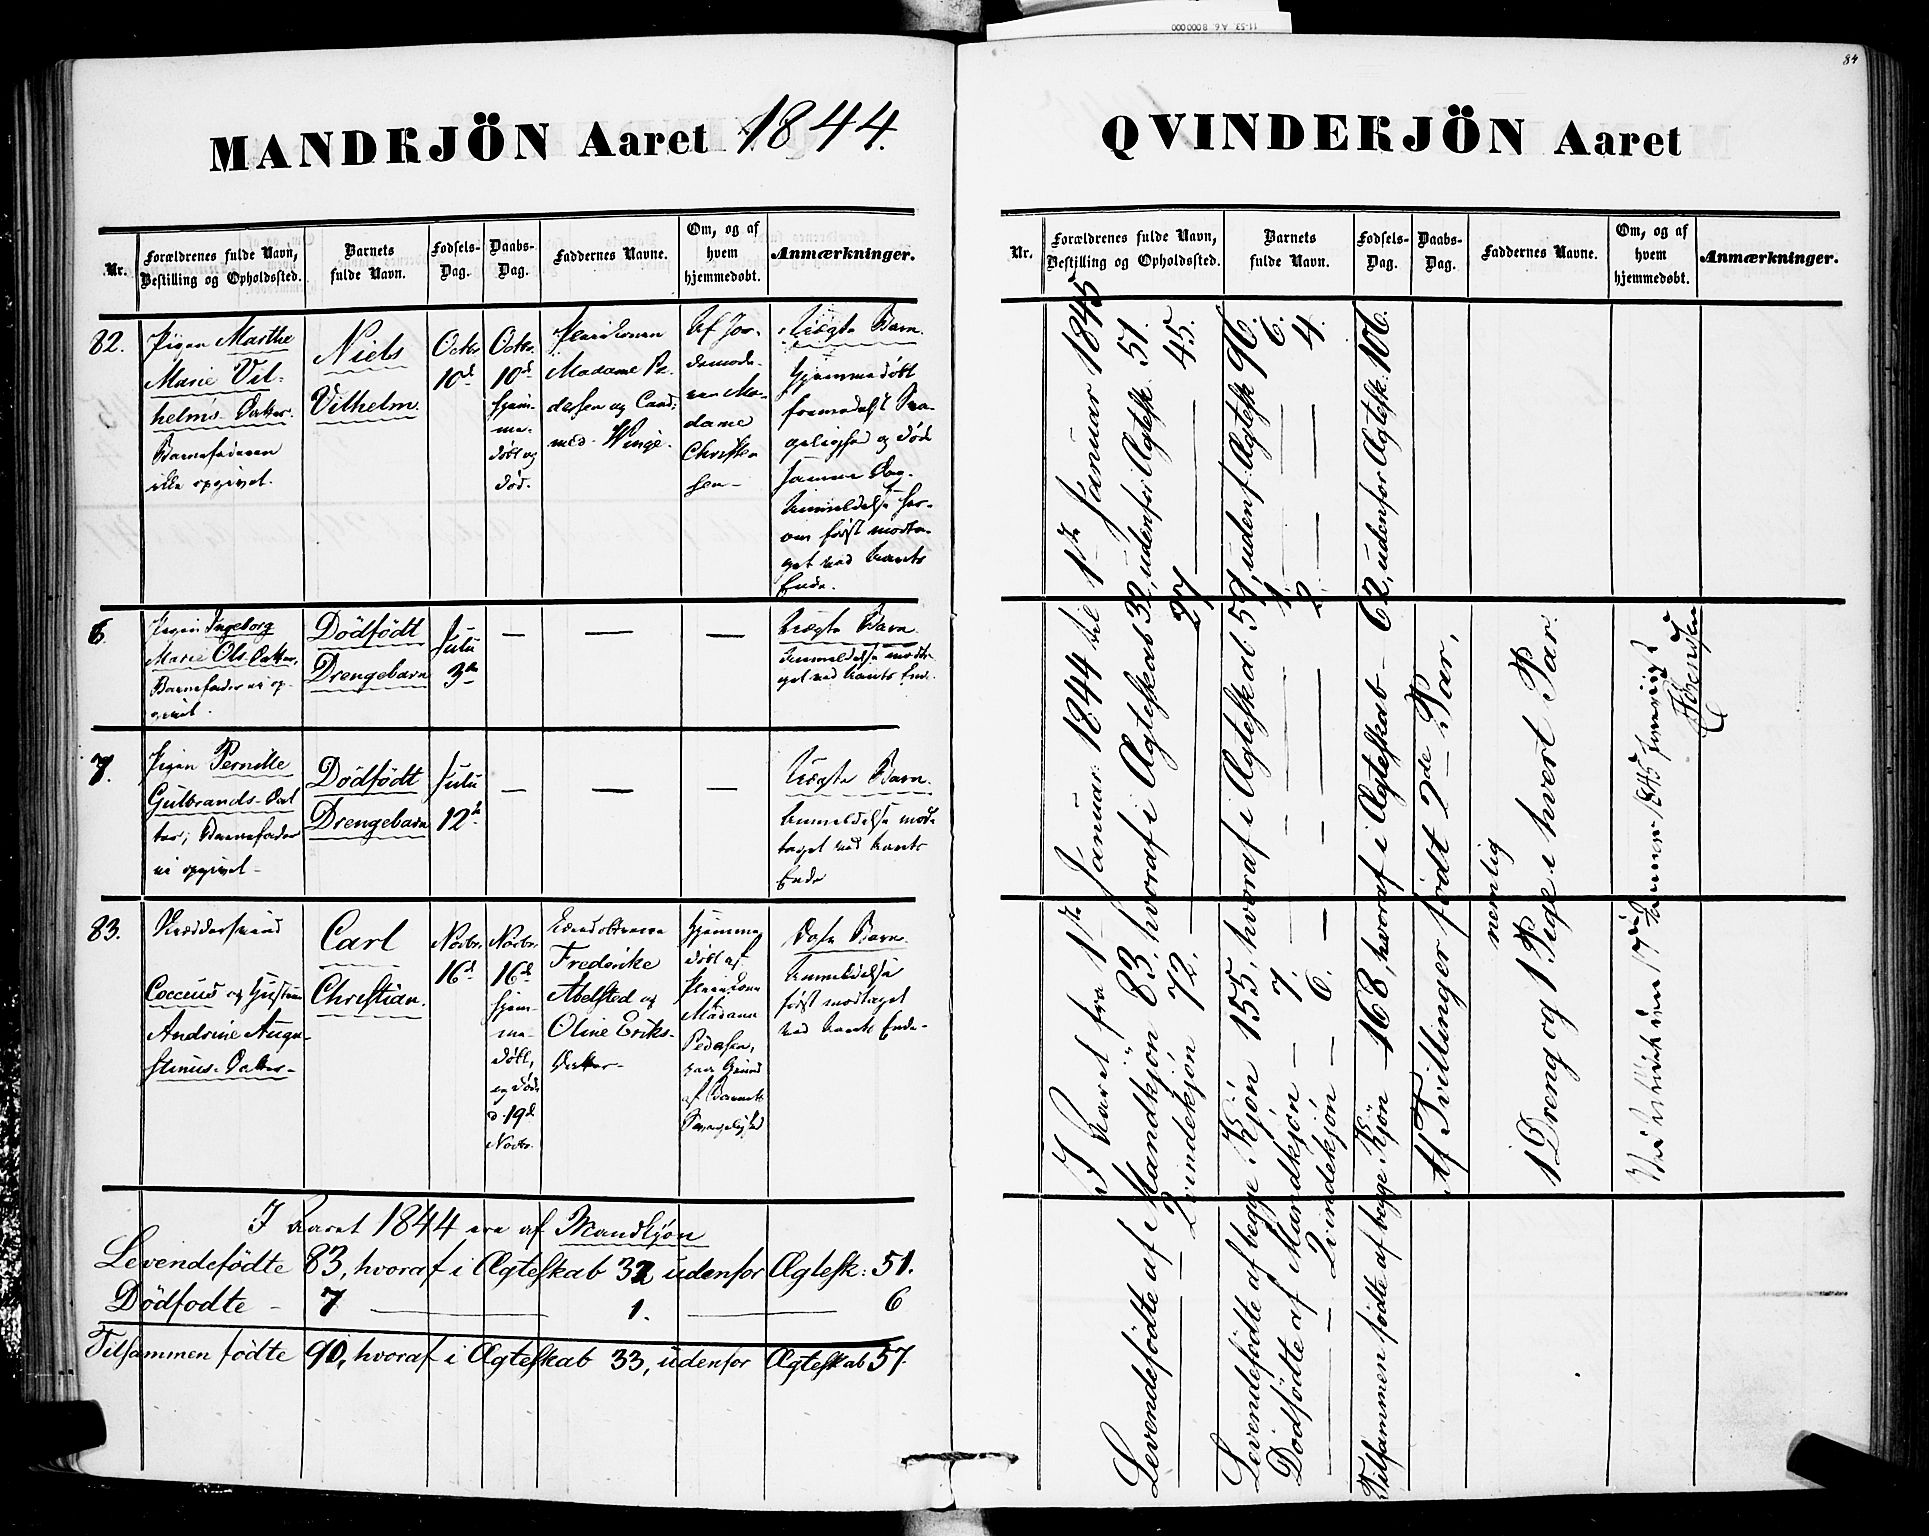 11-53. A6. 8000000
84
MANDKJÖN Aaret 1844.
Nr.
Forældrenes fulde Navn,
Bestilling og Opholdssted.
Barnets
fulde Navn.
Fødsels-
Dag.
Daabs-
Dag.
Faddernes Navne.
Om, og af
hvem
hjemmedøbt.
Anmærkninger.
82.
Pigen Marthe
Marie Vil-
helms-Datter.
Barnefaderen
ikke opgivet.
Niels
Vilhelm.
Octbr.
10d
Octbr.
10d
hjem-
me-
døbt og
død.
Madame Pe-
dersen og Cand:
med. Winge.
Af Jor-
demode-
ren Ma-
dame
Christen
sen-
Uægte Barn.
hjemmedøbt
formedelst Sva-
gelighed og døde
samme Dag.
Anmeldelse her-
om først modta-
get ved Aarets
Ende.
6.
Pigen Ingeborg
Marie Ols-Datter,
Barnefader ei op-
givet.
Dödfödt
Drengebarn
Juli
3die
Uægte Barn.
Anmeldelse modta-
get ved Aarets Ende.
7.
Pigen Pernille
Gulbrands-Dat
ter; Barnefader
ei opgivet-
Dödfödt
Drengebarn
Juli
12te
Uægte Barn.
Anmeldelse mod-
taget ved Aarets
Ende
83.
Skræddersvend
Coccius og Hustru
Andrine Augu-
stinus-Datter-
Carl
Christian.
Novbr.
16d
Novbr.
16d
hjem-
me-
døbt,
og døde
d. 19d
Novbr.
Frederike
Abelsted og
Oline Eriks-
Datter-
Hjemme
døbt af
Madame
Pedersen,
paa Grund
af Barnets
Svagelighed
Anmeldelse
først modtaget
ved Aarets Ende-
I Aaret 1844 ere af Mandkjøn
Levendefödte 83, hvoraf i Ægteskab 32 udenfor Ægtesk: 51.
Dödfodte - 7 1. 6
Tilsammen födte 90, hvoraf i Ægteskab 33, udenfor Ægteskab 57.
QVINDEKJÖN Aaret
Nr.
Forældrenes fulde Navn,
Bestilling og Opholdssted.
Barnets
fulde Navn.
Fødsels-
Dag.
Daabs-
Dag.
Faddernes Navne.
Om, og af
hvem
hjemmedøbt.
Anmærkninger.
I Aaret fra 1ste Januar 1844 til 1ste Januar 1845
Levendefödte af Mandkjön 83. hvoraf i Ægteskab 32, udenfor Ægtesk. 51.
— Qvindekjön 72. — 27 — 45.
Levendefödte af begge Kjön 155, hvoraf i Ægteskab 59, udenf. Ægtesk 96.
Dödfödte af Mandkjön - 7. — 1. — 6.
— Qvindekjön - 6. — 2. — 4.
Tilsammen födte af begge Kjön 168, hvoraf i Ægteskab 62, udenfor Ægtesk: 106.
Af Tvillinger födt 2de Par,
nemlig
1 Dreng og 1 Pige i hvert Par.